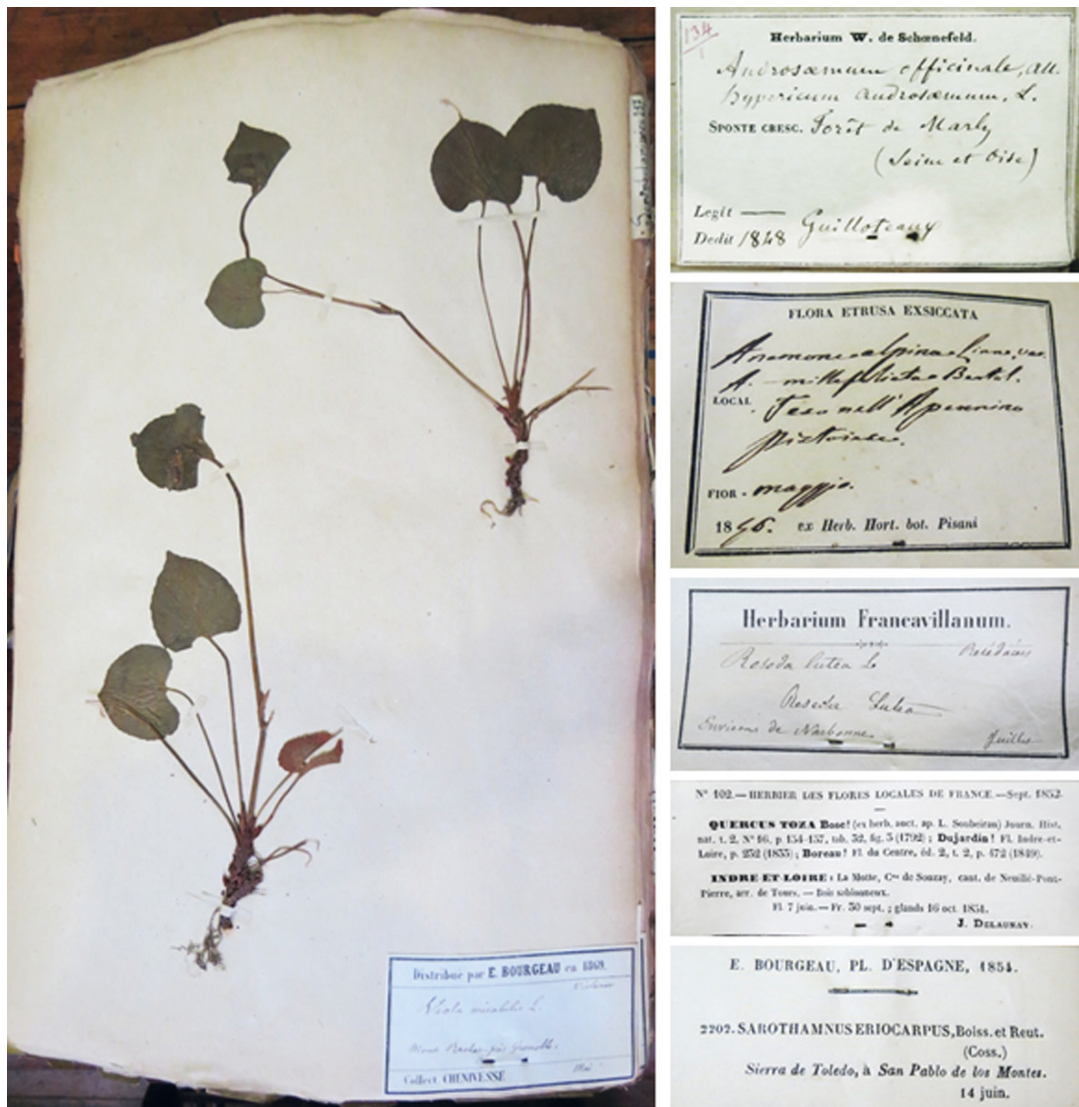 Distribué par E. BOURGEAU en 1869.
Viola mirabilis L.
Mont Rachet près Grenoble.
Mai
Collect CHENIVESSE
134
Herbarium W. de Schœnefeld.
Androsæmum officinale, All.
hypericum androsæmum, L.
SPONTE CRESC. Forêt de Marly
(Seine et Oise)
Legit —
Dedit 1848 Guilloteaux
FLORA ETRUSA EXSICCATA
Anemone alpina Linn. var.
A. millefoliata Bertol.
LOCAL. Teso nell' Apennino
pistoiese.
FIOR. maggio.
1856. ex Herb. Hort. bot. Pisani
Herbarium Francavillanum.
Résédacées
Reseda lutea L
Reseda Lutea
Environs de Narbonne
Juillet
N° 102.—HERBIER DES FLORES LOCALES DE FRANCE.—Sept. 1852.
QUERCUS TOZA Bosc! (ex herb. auct. ap. L. Soubeiran) Journ. Hist.
nat. t. 2, N° 16, p 154-157, tab. 32, fig. 3 (1792) ; Dujardin! Fl. Indre-et-
Loire, p. 252 (1833) ; Boreau! Fl. du Centre, éd. 2, t. 2, p. 472 (1849).
INDRE-ET-LOIRE : La Motte, Cne de Sonzay, cant. de Neuillé-Pont-
Pierre, arr. de Tours. — Bois sablonneux.
Fl. 7 juin. — Fr. 30 sept. ; glands 16 oct. 1851.
J. DELAUNAY.
E. BOURGEAU, PL. D'ESPAGNE, 1854.
2202. SAROTHAMNUS ERIOCARPUS, Boiss. et Reut.
(Coss.)
Sierra de Toledo, à San Pablo de los Montes.
14 juin.